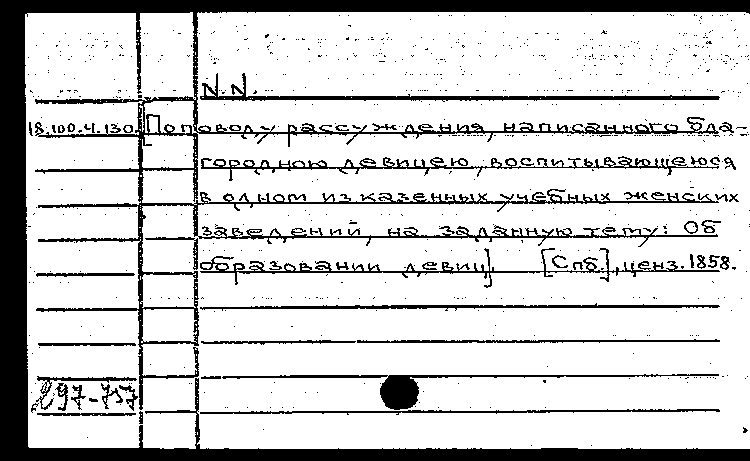 N.N.
18.100.4.130. [По поводу рассуждения, написанного бла-
городною девицею, воспитывающеюся
в одном из казенных учебных женских
заведений, на заданную тему: Об
образовании девиц]. [Спб.], ценз. 1858.
297-757